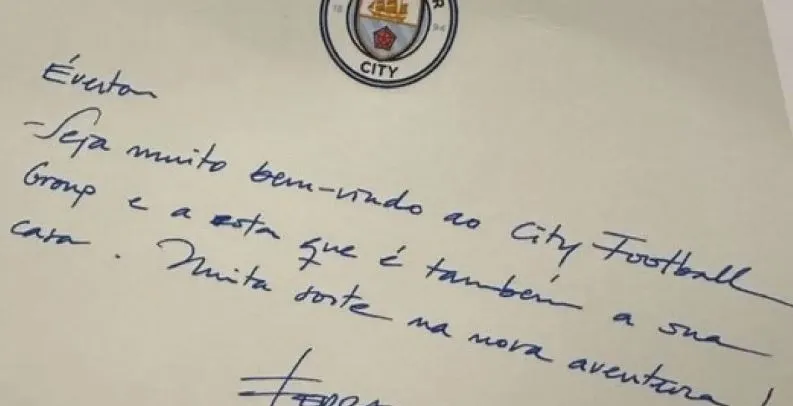 18 94
CITY
Éverton
-Seja muito bem-vindo ao City Football
Group e a esta que é também a sua
casa. Muita sorte na nova aventura!